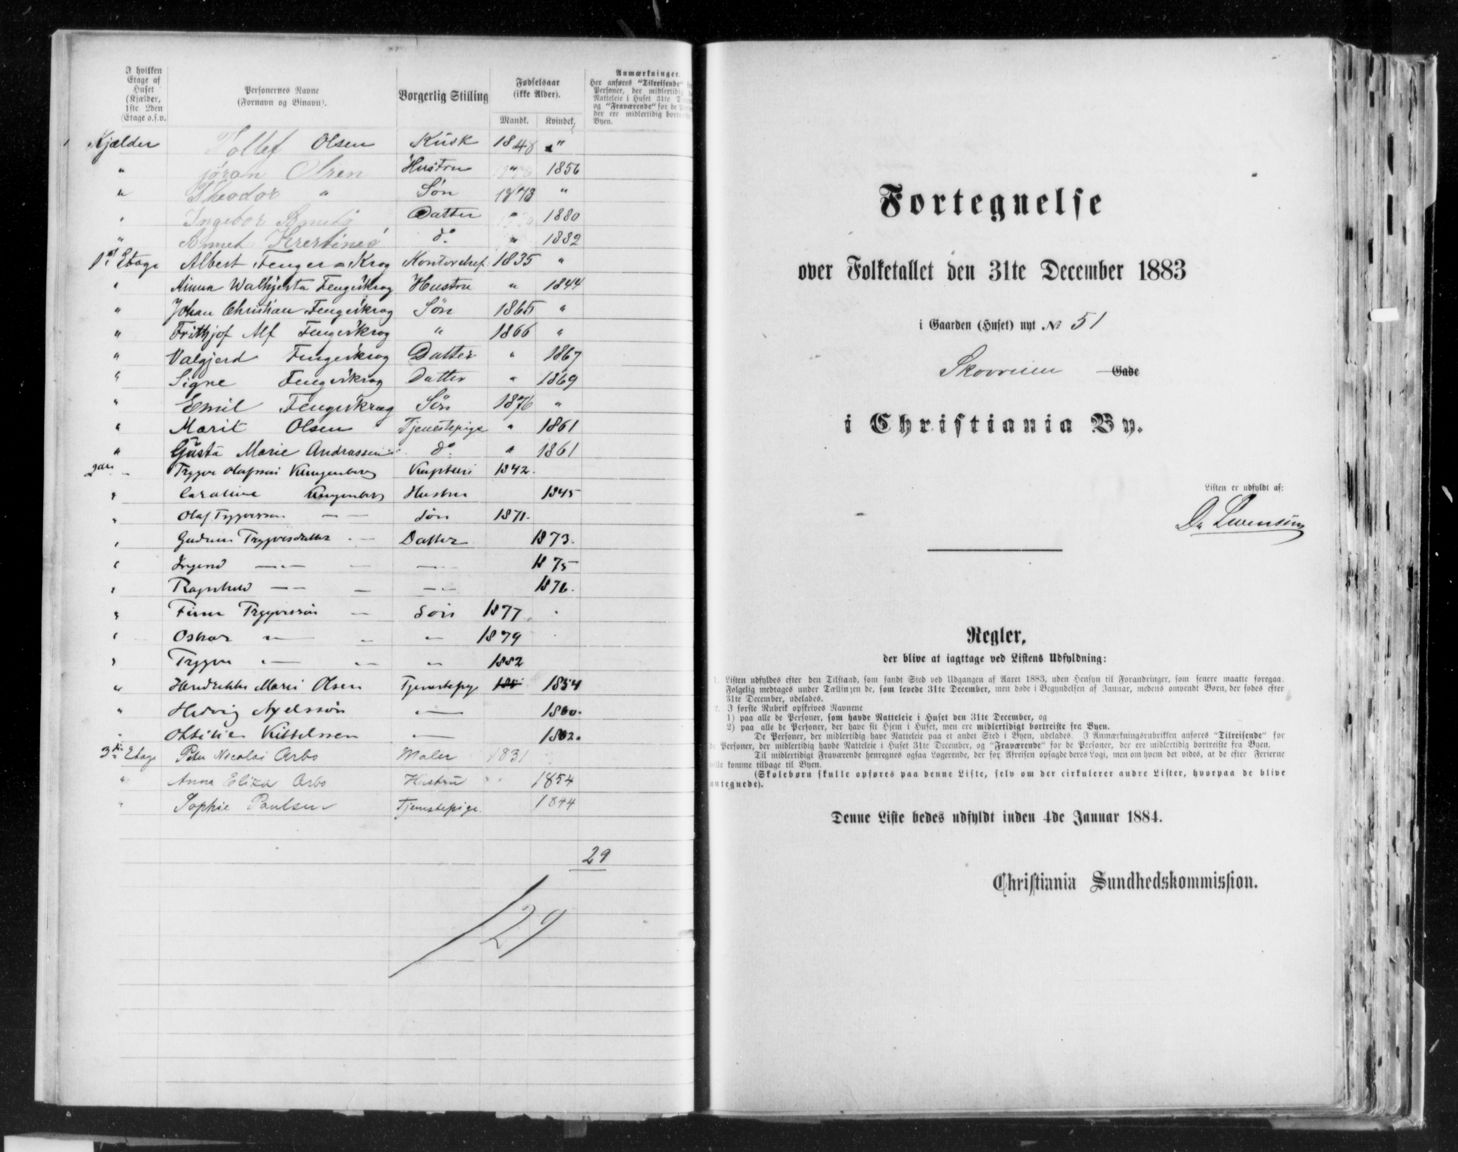 I hvilken Etage af Huset (Kjælder, 1ste 2den Etage o.s.v.
Personernes Navne (Fornavn og Binavn).
Borgerlig Stilling
Fødselsaar (ikke Alder).
Mandk. Kvindek.
Anmærkninger.
Kjælder Tollef Olsen Kusk 1848 "
" Olsen Hustru " 1856
" Theodor " Søn 1878 "
" Datter " 1880
" do " 1882
1st Etage Albert Fenger Krog Kontorchef 1835 "
" Anna Fengerkrog Hustru " 1844
" Johan Christian Fengerkrog Søn 1865 "
" Frithjof Alf Fengerkrog " 1866 "
" Valgjerd Fengerkrog Datter " 1867
" Signe Fengerkrog Datter " 1869
" Emil Fengerkrog Søn 1876 "
" Marit Olsen Tjenestepige " 1861
" Gusta Marie Andrassen do " 1861
Trygve Klingenberg 1842.
" Caroline Klingenberg Hustru 1845
" Olaf Tryggvessøn — — Søn 1871.
" Gudrun Tryggvesdatter — Datter 1873.
" — — — 1875
" Ragnhild — — — 1876.
" Finn Tryggvessøn — Søn 1877
" Oskar — — — 1879
" Trygve — — — 1882
" Marie Olsen Tjenestepige 1854
" Hedvig Axelssøn — 1860.
" Kittelsen — 1862.
3die Etage Peter Nicolai Arbo Maler 1831
" Anna Eliza Arbo Hustru " 1854
" Sophie Paulsen Tjenestepige. 1844
29
129
Fortegnelse
over Folketallet den 31te December 1883
i Gaarden (Huset) nyt № 51
Skovveien Gade
i Christiania By.
Listen er udfyldt af:
Regler,
der blive at iagttage ved Listens Udfyldning:
1. Listen udfyldes efter den Tilstand, som fandt Sted ved Udgangen af Aaret 1883, uden Hensyn til Forandringer, som senere maatte foregaa.
Følgelig medtages under Tællingen de, som levede 31te December, men døde i Begyndelsen af Januar, medens omvendt Børn, der fødes efter
31te December, udelades.
2. I første Rubrik opskrives Navnene
1) paa alle de Personer, som havde Natteleie i Huset den 31te December, og
2) paa alle de Personer, der have sit Hjem i Huset, men ere midlertidigt bortreiste fra Byen.
De Personer, der midlertidig have Natteleie paa et andet Sted i Byen, udelades. I Anmærkningsrubrikken anføres "Tilreisende" for
de Personer, der midlertidig havde Natteleie i Huset 31te December, og "Fraværende" for de Personer, der ere midlertidig bortreiste fra Byen.
Til midlertidigt Fraværende henregnes ogsaa Logerende, der før Afreisen opsagde deres Logi, men om hvem det vides, at de efter Ferierne
ville komme tilbage til Byen.
(Skolebørn skulle opføres paa denne Liste, selv om der cirkulerer andre Lister, hvorpaa de blive
antegnede).
Denne Liste bedes udfyldt inden 4de Januar 1884.
Christiania Sundhedskommission.